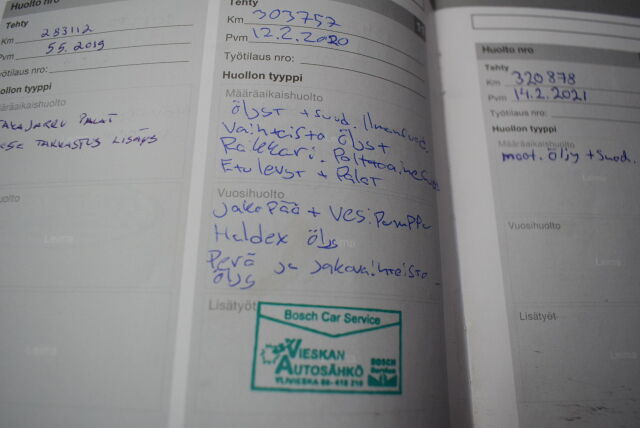 Huolto nro
Tehty
Km 283112
Pvm 5.5.2019
Työtilaus nro:
Huollon tyyppi
Määräaikaishuolto
TAKAJARRU PALAT
TARKASTUS LISÄYS
Tehty
Km 303757
Pvm 12.2.2020
Työtilaus nro:
Huollon tyyppi
Määräaikaishuolto
Öljyt + suod. Ilmansuod.
Vaihteisto Öljyt
Raikkari. Polttoainesuod
Etulevyt + Palat
Vuosihuolto
Jakopää + Vesipumppu
Haldex öljy
Perä ja jakovaihteisto
öljy
Lisätyöt
Bosch Car Service
VIESKAN
AUTOSÄHKÖ
BOSCH
Service
YLIVIESKA
Huolto nro
Tehty
Km 320878
Pvm 14.2.2021
Työtilaus nro:
Huollon tyyppi
Määräaikaishuolto
moot. öljy + suod.
Vuosihuolto
Lisätyöt